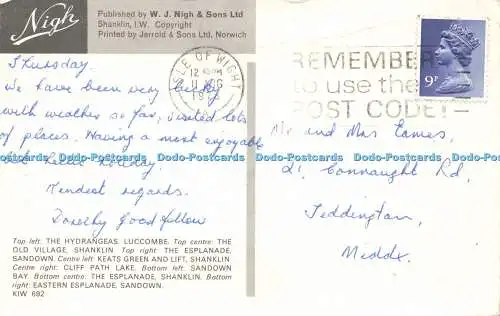 Nigh
Published by W. J. Nigh & Sons Ltd
Shanklin, I.W. Copyright
Printed by Jarrold & Sons Ltd, Norwich
ISLE OF WIGHT
REMEMBER
to use the
POST CODE!
9P
Thursday.
We have been very lucky
with weather so far, visited lots
of places. Having a most enjoyable
holiday.
Kindest regards.
Dorothy Goodfellow
Mr and Mrs Eames,
21 Connaught Rd,
Teddington,
Middx.
Top left: THE HYDRANGEAS, LUCCOMBE. Top centre: THE
OLD VILLAGE, SHANKLIN. Top right: THE ESPLANADE,
SANDOWN. Centre left: KEATS GREEN AND LIFT, SHANKLIN
Centre right: CLIFF PATH LAKE. Bottom left: SANDOWN
BAY. Bottom centre: THE ESPLANADE, SHANKLIN. Bottom
right: EASTERN ESPLANADE, SANDOWN.
KIW 692
Dodo-Postcards Dodo-Postcards Dodo-Postcards Dodo-Postcards